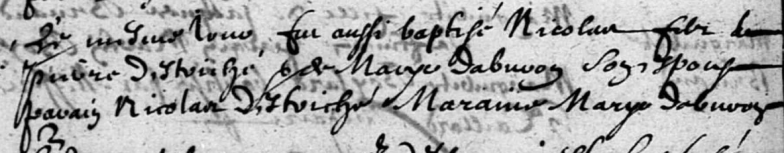 Le mesme iour fut aussi baptisé Nicolas filz de
pierre distviché & de Marye dabuvoy Son espouse
parain Nicolas distviché Maraine Marye dabuvoy